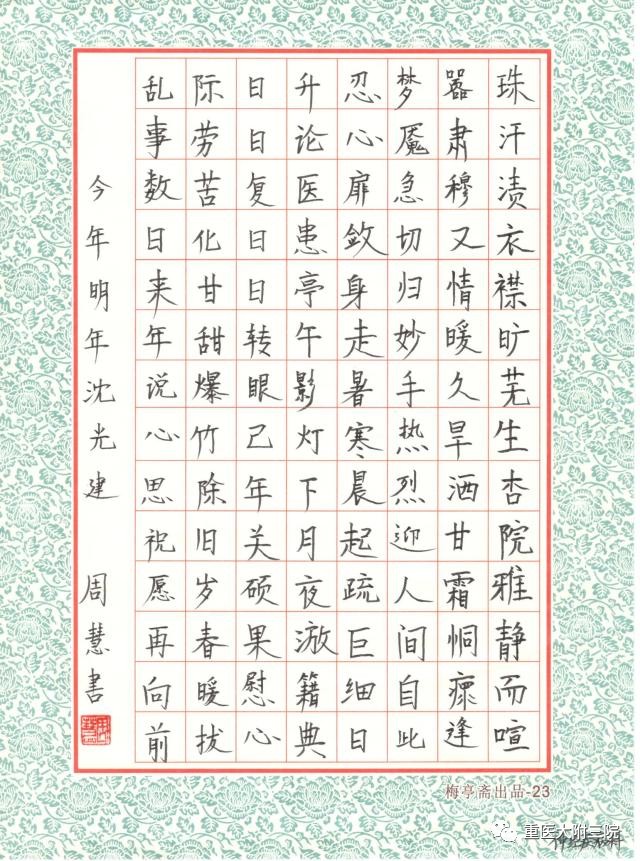 珠汗渍衣襟旷芜生杏院雅静而喧
嚣肃穆又情暖久旱洒甘霜恫瘝逢
梦魇急切归妙手热烈迎人间自此
忍心扉敛身走暑寒晨起疏巨细日
升论医患亭午影灯下月夜籍典
日日复日日转眼已年关硕果慰心
际劳苦化甘甜爆竹除旧岁春暖拔
乱事数日来年说心思祝愿再向前
今年明年沈光建 周慧书
梅亭斋出品-23
重医大附三院